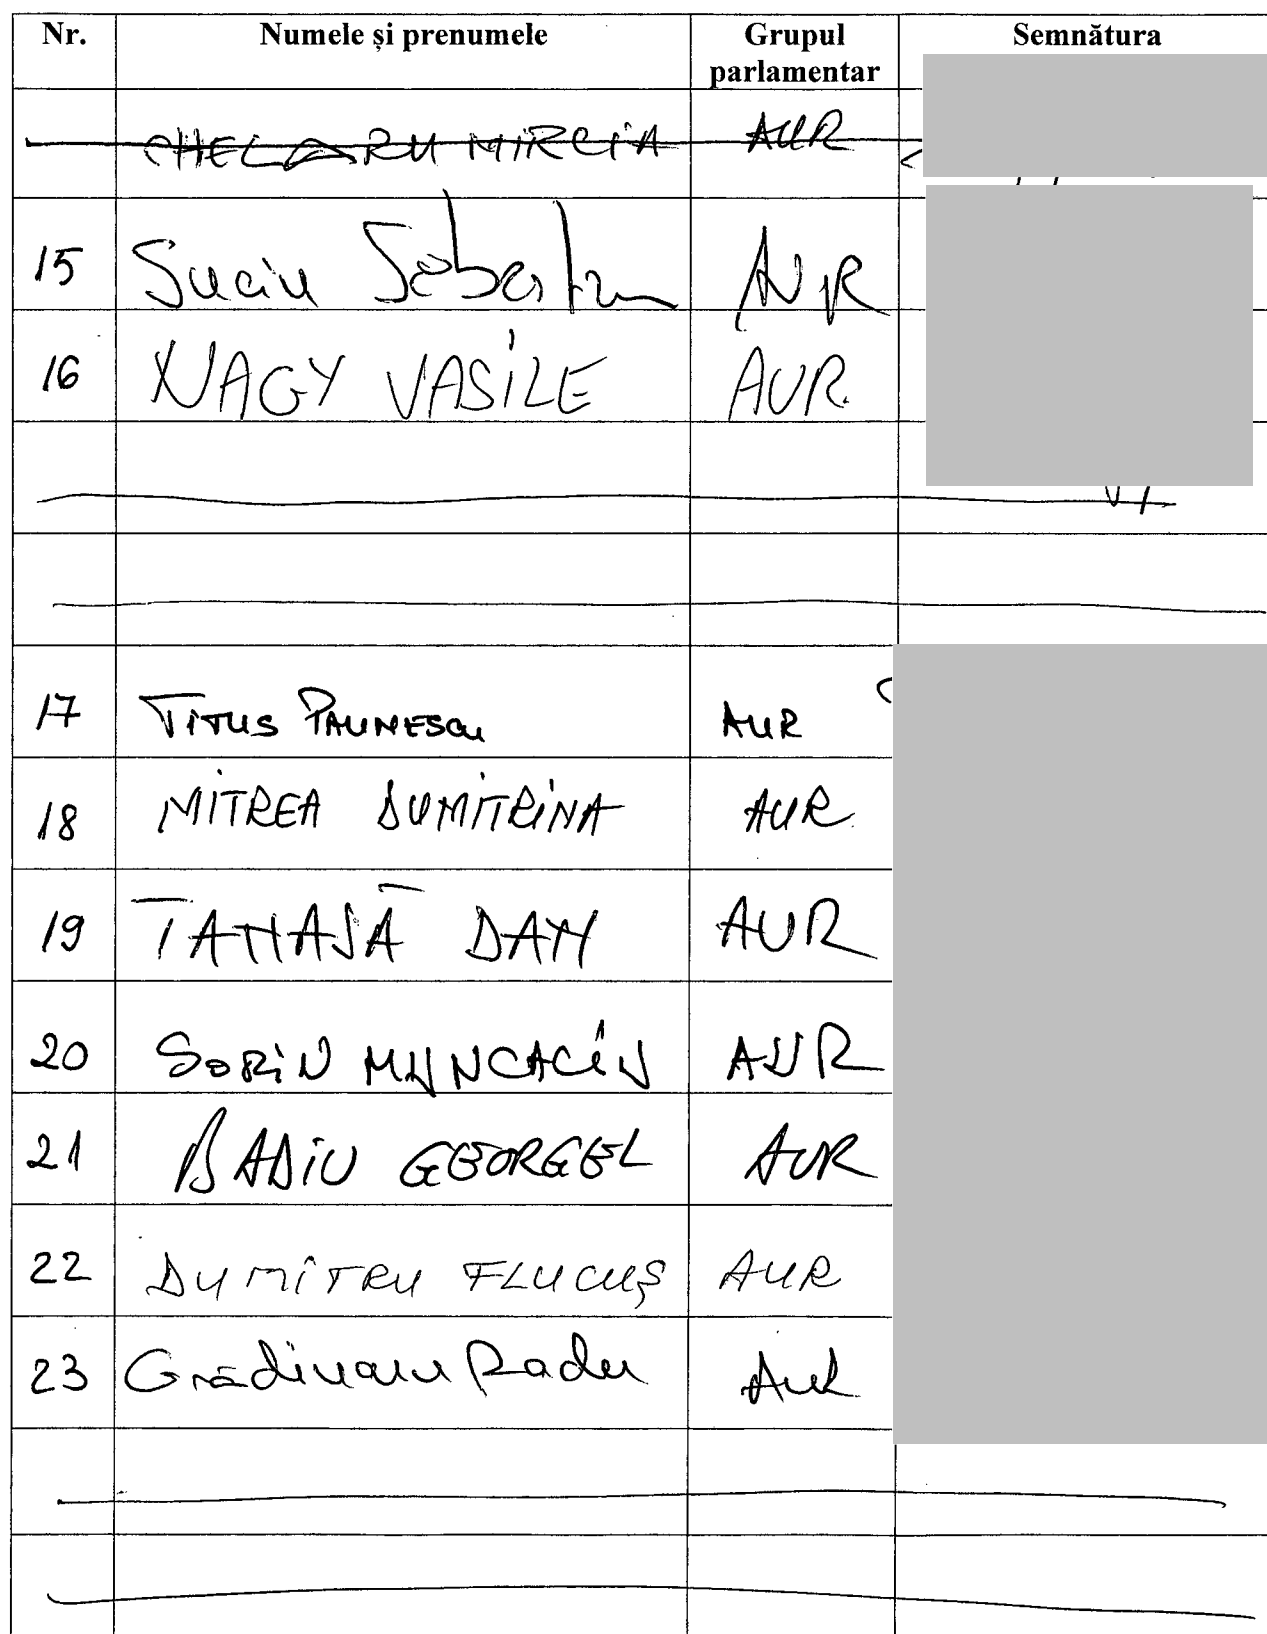 Nr. Numele și prenumele Grupul parlamentar Semnătura
CHELARU MIRCIA AUR
15 Suciu Sebastian AUR
16 NAGY VASILE AUR
17 TITUS PAUNESCU AUR
18 MITREA DUMITRINA AUR
19 TANASĂ DAN AUR
20 SORIN MUNCACIU AUR
21 BADIU GEORGEL AUR
22 DUMITRU FLUCUȘ AUR
23 Grădinaru Radu AUR